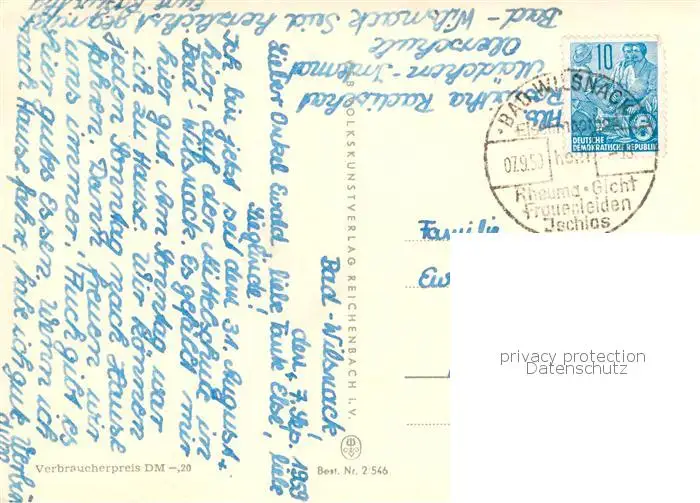 Bad-Wilsnack
den 7. Sep. 1959
Lieber Onkel Ewald, liebe Tante Else, liebe
Sieglinde!
Ich bin jetzt seit dem 31. August
hier, auf der Mittelschule in
Bad-Wilsnack. Es gefällt mir
hier gut. Am Sonntag war
ich zu Hause. Wir können
jeden Sonntag nach Hause
fahren. Darauf freuen wir
uns immer. Auch gibt es
hier gutes Essen. Wenn ich
nach Hause fahre, habe ich
Seid herzlichst gegrüßt
Eure
Radischat
Mädchen-Internat
Oberschule
Bad-Wilsnack
Abs.
Familie
VOLKSKUNSTVERLAG REICHENBACH i. V.
Verbraucherpreis DM –,20
Best. Nr. 2 546
10
DEUTSCHE
DEMOKRATISCHE REPUBLIK
BAD WILSNACK
07.9.59
Rheuma · Gicht
Frauenleiden
Ischias
privacy protection
Datenschutz